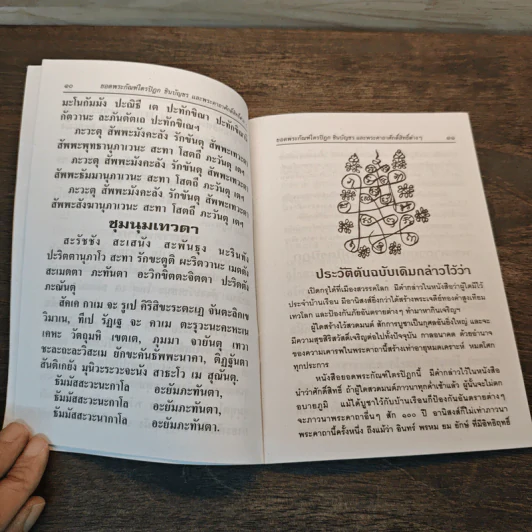 ๑๐ ยอดพระกัณฑ์ไตรปิฎก ชินบัญชร และพระคาถาศักดิ์สิทธิ์
มะโนกัมมัง ปะณิธี เต ปะทักขิณา ปะทักขิณา
กัตวานะ ละภันตัตเถ ปะทักขิเณฯ
ภะวะตุ สัพพะมังคะลัง รักขันตุ สัพพะเทวะตา
สัพพะพุทธานุภาเวนะ สะทา โสตถี ภะวันตุ เตฯ
ภะวะตุ สัพพะมังคะลัง รักขันตุ สัพพะเทวะตา
สัพพะธัมมานุภาเวนะ สะทา โสตถี ภะวันตุ เตฯ
ภะวะตุ สัพพะมังคะลัง รักขันตุ สัพพะเทวะตา
สัพพะสังฆานุภาเวนะ สะทา โสตถี ภะวันตุ เตฯ
ชุมนุมเทวดา
สะรัชชัง สะเสนัง สะพันธุง นะรินทัง
ปะริตตานุภาโว สะทา รักขะตูติ ผะริตวานะ เมตตัง
สะเมตตา ภะทันตา อะวิกขิตตะจิตตา ปะริตตัง
ภะณันตุ
สัคเค กาเม จะ รูเป คิริสิขะระตะเฏ จันตะลิกเข
วิมาเน, ทีเป รัฏเฐ จะ คาเม ตะรุวะนะคะหะเน
เคหะ วัตถุมหิ เขตเต, ภุมมา จายันตุ เทวา
ชะละถะละวิสะเม ยักขะคันธัพพะนาคา, ติฏฐันตา
สันติเกยัง มุนิวะระวะจะนัง สาธะโว เม สุณันตุ.
ธัมมัสสะวะนะกาโล อะยัมภะทันตา,
ธัมมัสสะวะนะกาโล อะยัมภะทันตา,
ธัมมัสสะวะนะกาโล อะยัมภะทันตา.
ยอดพระกัณฑ์ไตรปิฎก ชินบัญชร และพระคาถาศักดิ์สิทธิ์ต่างๆ ๑๑
ประวัติต้นฉบับเดิมกล่าวไว้ว่า
เปิดกรุได้ที่เมืองสวรรคโลก มีคำกล่าวในหนังสือว่าผู้ใดมีไว้
ประจำบ้านเรือน มีอานิสงส์ยิ่งกว่าได้สร้างพระเจดีย์ทองคำสูงเทียม
เทวโลก และป้องกันภัยอันตรายต่างๆ ทำมาหากินเจริญฯ
ผู้ใดสร้างไว้สวดมนต์ สักการบูชาเป็นกุศลอันยิ่งใหญ่ และจะ
มีความสุขสิริสวัสดิ์เจริญต่อไปทั้งปัจจุบัน กาลอนาคต ด้วยอำนาจ
ของความเคารพในพระคาถานี้สร้างเท่าอายุหมดเคราะห์ หมดโศก
ทุกประการ
หนังสือยอดพระกัณฑ์ไตรปิฎกนี้ มีคำกล่าวไว้ในหนังสือ
นำว่าศักดิ์สิทธิ์ ถ้าผู้ใดสวดมนต์ภาวนาทุกค่ำเช้าแล้ว ผู้นั้นจะไม่ตก
อบายภูมิ แม้ได้บูชาไว้กับบ้านเรือนก็ป้องกันอันตรายต่างๆ
จะภาวนาพระคาถาอื่นๆ สัก ๑๐๐ ปี อานิสงส์ก็ไม่เท่าภาวนา
พระคาถานี้ครั้งหนึ่ง ถึงแม้ว่า อินทร์ พรหม ยม ยักษ์ ที่มีอิทธิฤทธิ์